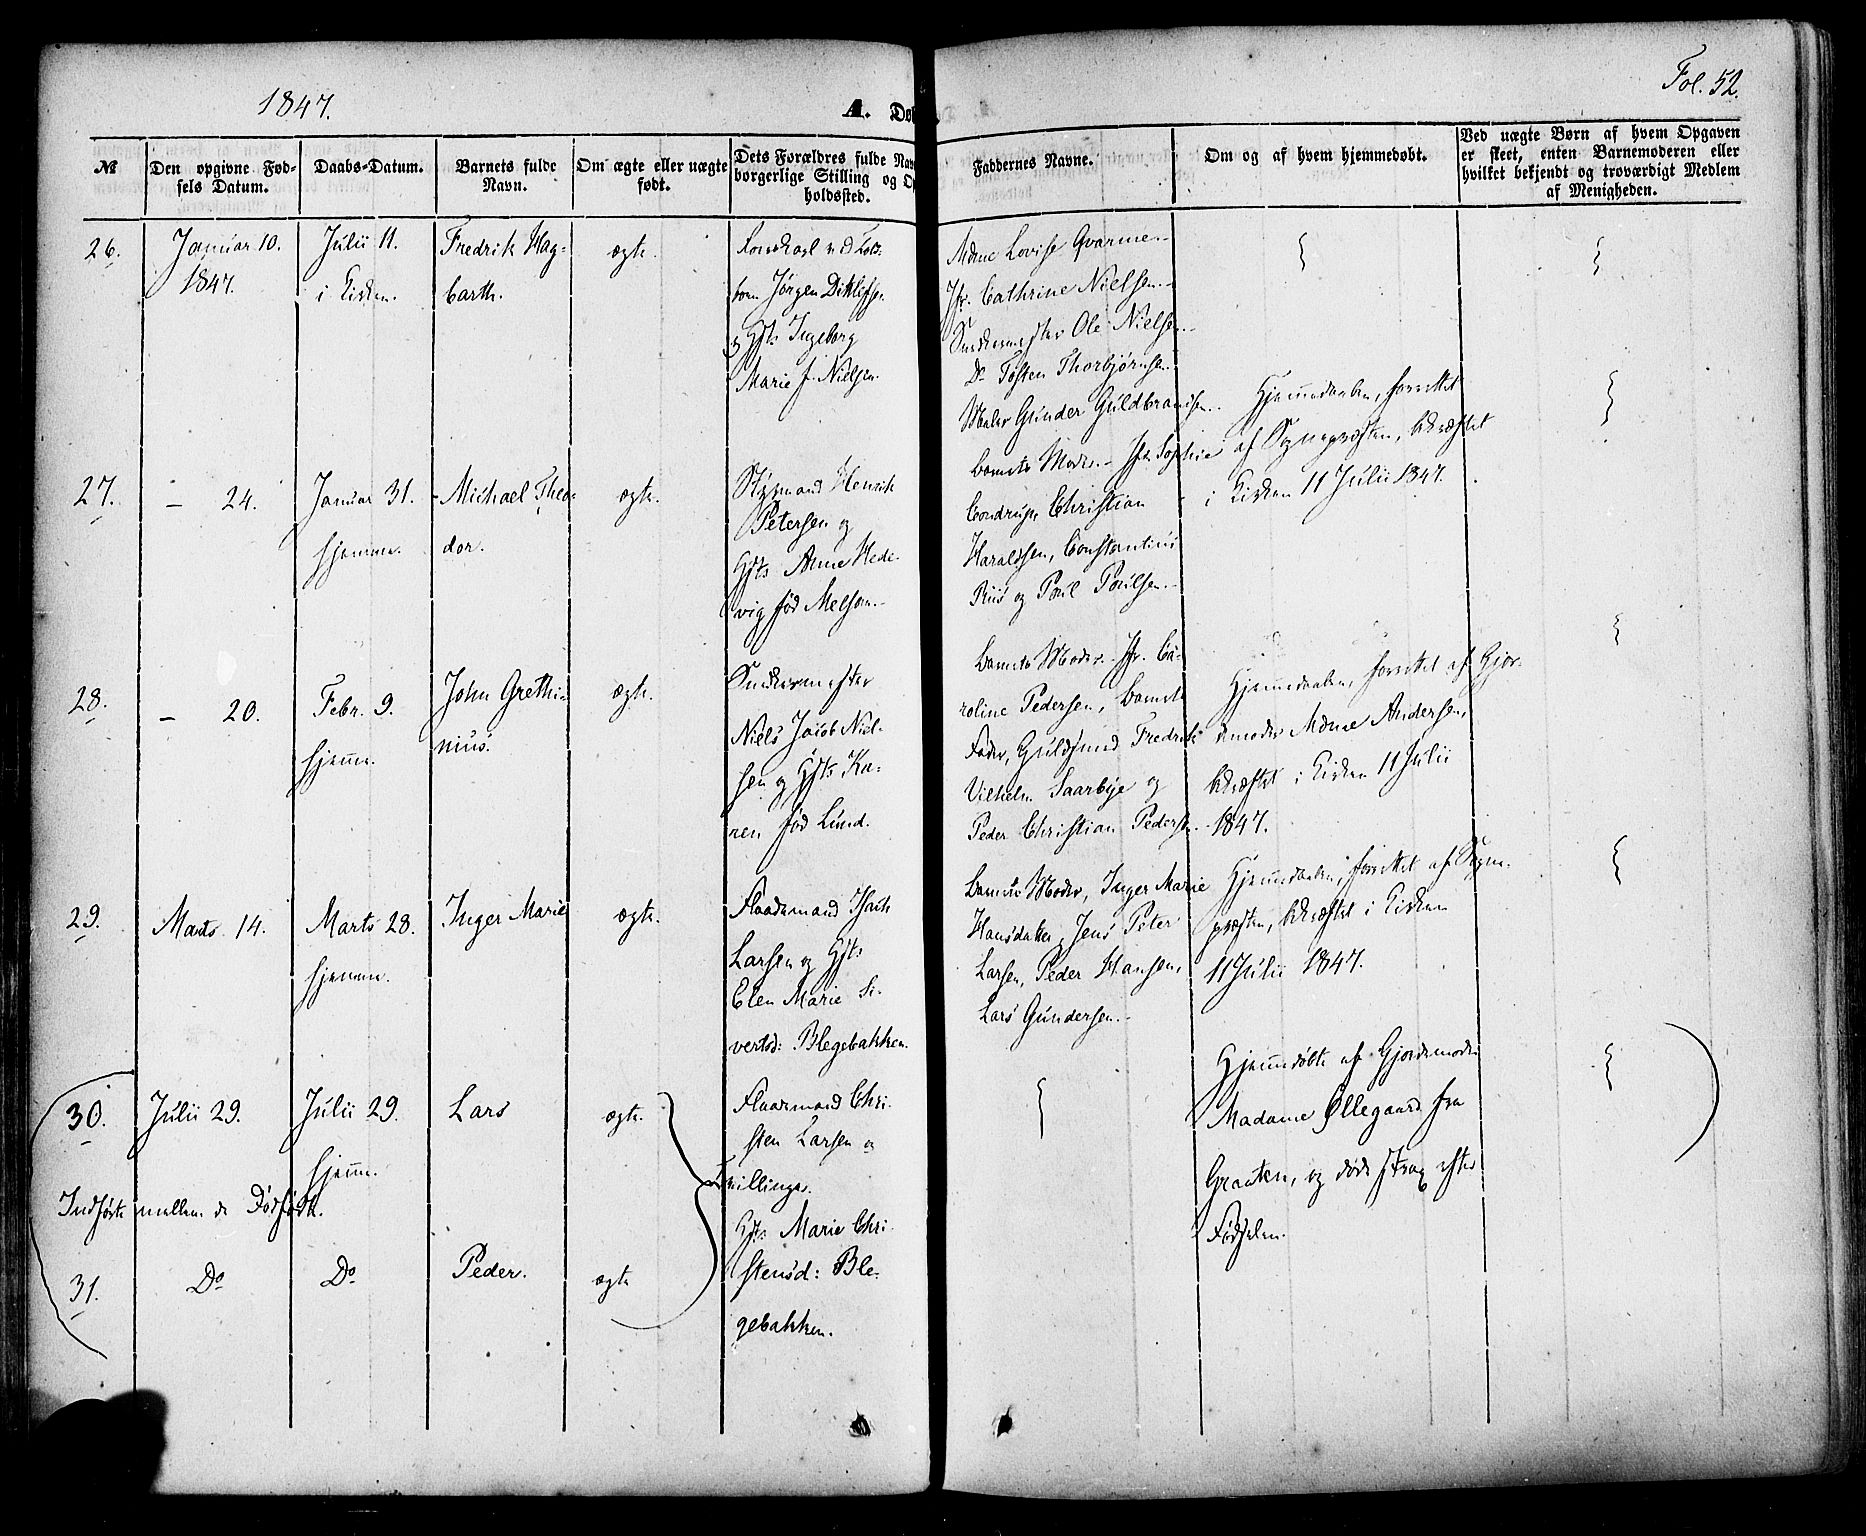 1847.
A. Døb
Fol. 52.
№
Den opgivne Fød-
sels Datum.
Daabs-Datum.
Barnets fulde
Navn.
Om ægte eller uægte
født.
Dets Forældres fulde Nav
borgerlige Stilling og Op
holdssted.
Faddernes Navne.
Om og af hvem hjemmedøbt.
Ved uægte Børn af hvem Opgaven
er skeet, enten Barnemoderen eller
hvilket bekjendt og troværdigt Medlem
af Menigheden.
26.
Januar 10.
1847.
Julii 11.
i Kirken.
Fredrik Hag-
barth.
ægte.
ved
Jørgen Ditlefsen
og Hst. Ingeborg
Marie f. Nielsen.
Mdme Lovise Qvarme.-
Jfr. Cathrine Nielsen.-
Snedkermester Ole Nielsen.-
Do Tosten Thorbjørnsen.
Maler Gunder Guldbrandsen.
27.
- 24.
Januar 31.
hjemme.
Michael Theo-
dor.
ægte.
Styrmand Henrik
Petersen og
Hst. Anne Hede-
vig fød Melsom.-
Barnets Moder.- Jfr. Sophie
Condrup, Christian
Haraldsen, Constantius
Riis og Poul Poulsen.-
Hjemmedaaben, forrettet
af Sognepræsten, bekræftet
i Kirken 11 Julii 1847.
28.
- 20.
Febr. 9.
hjemme.
John Grethi-
nius.
ægte.
Snedkermester
Niels Jacob Niel-
sen og Hst. Ka-
ren fød Lund.
Barnets Moder.- Jfr. Ca-
roline Pedersen, Barnets
Fader, Guldsmed Fredrik
Vilhelm Saarbye og
Peder Christian Pedersen.
Hjemmedaaben, forrettet af Gjor-
demoder Mdme Andersen,
bekræftet i Kirken 11 Julii
1847.
29.
Marts 14.
Marts 28.
hjemme.
Inger Marie
ægte.
Flaademand Isach
Larsen og Hst.
Elen Marie Si-
vertsd: Blegebakken.
Barnets Moder, Inger Marie
Hansdatter, Jens Peter
Larsen, Peder Hansen,
Lars Gundersen.-
Hjemmedaaben, forrettet af Sogne-
præsten, bekræftet i Kirken
11 Julii 1847.
30.
Julii 29.
Julii 29.
hjemme.
Lars
ægte.
Flaademand Chri-
sten Larsen og
Tvillinger.
Hst. Marie Chri-
stensd: Ble-
gebakken.
Hjemmedøbte af Gjordemoder
Madame Øllegaard fra
Graaten, og døde strax efter
Fødselen.
Indførte mellem de Dødfødte.
31.
Do
Do
Peder.
ægte